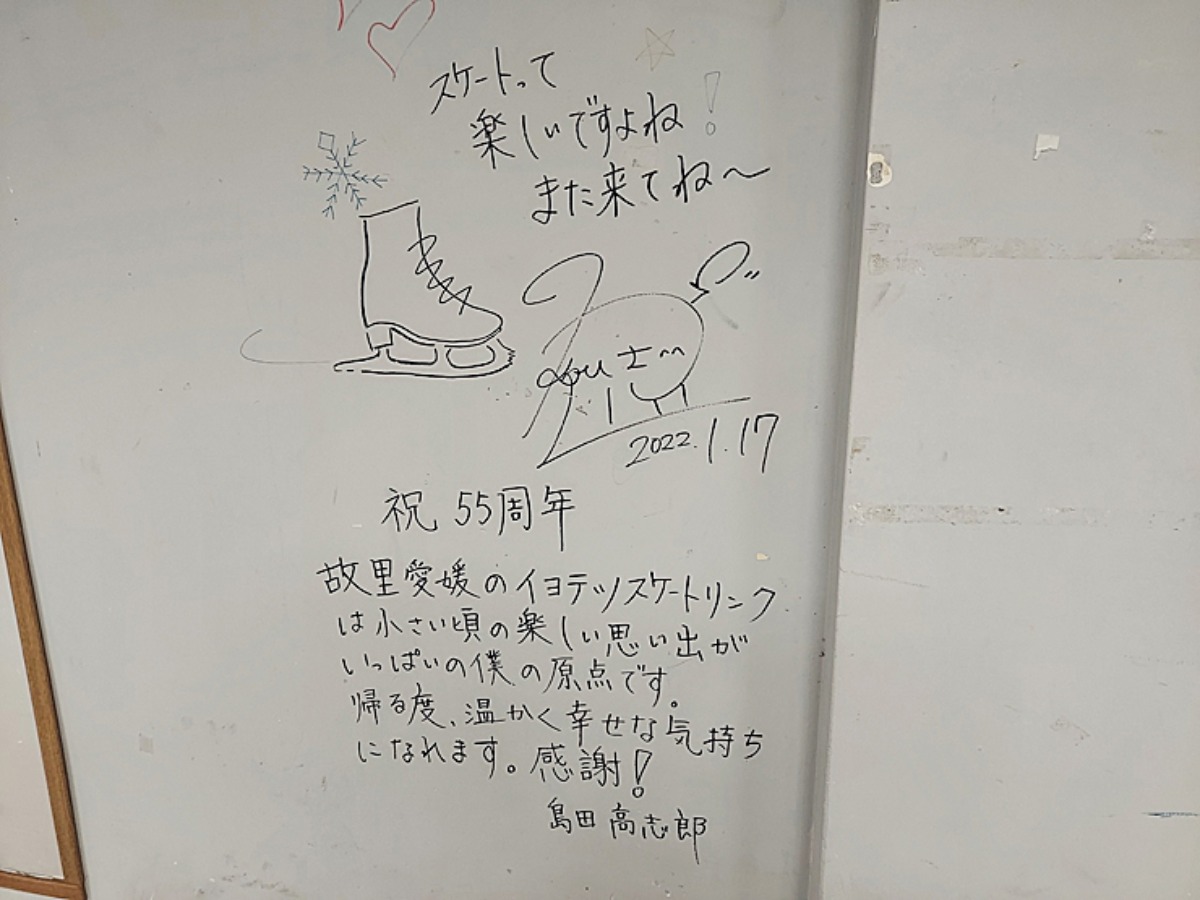 スケートって
楽しいですよね!
また来てね〜
2022.1.17
祝 55周年
故里愛媛のイヨテツスケートリンク
は小さい頃の楽しい思い出が
いっぱいの僕の原点です。
帰る度、温かく幸せな気持ち
になれます。感謝!
島田高志郎